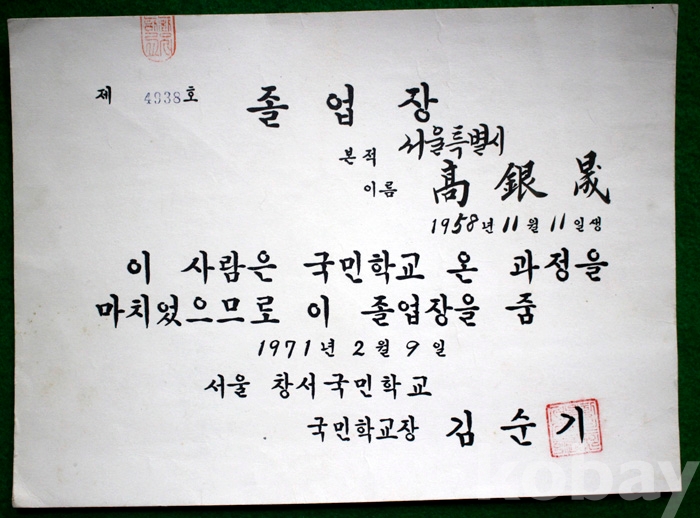 제 4938호
졸업장
본적 서울특별시
이름 高銀晟
1958년 11월 11일생
이 사람은 국민학교 온 과정을
마치었으므로 이 졸업장을 줌
1971년 2월 9일
서울 창서국민학교
국민학교장 김순기
kobay